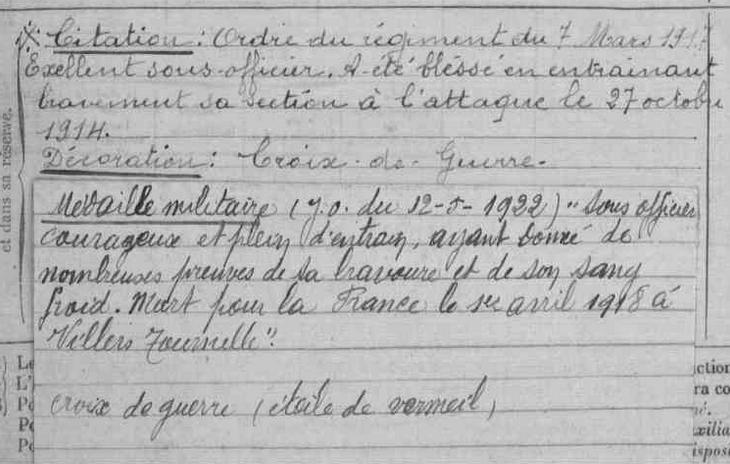 Citation: Ordre du régiment du 7 Mars 1917
Exellent sous-officier. A été bléssé en entrainant
bravement sa section à l'attaque le 27 octobre
1914.
Décoration: Croix-de-Guerre.
et dans sa réserve.
Médaille militaire (J.O. du 12-5-1922) "Sous officier
courageux et plein d'entrain, ayant donné de
nombreuses preuves de sa bravoure et de son sang
froid. Mort pour la France le 1er avril 1918 à
Villers Tournelle".
croix de guerre (étoile de vermeil)